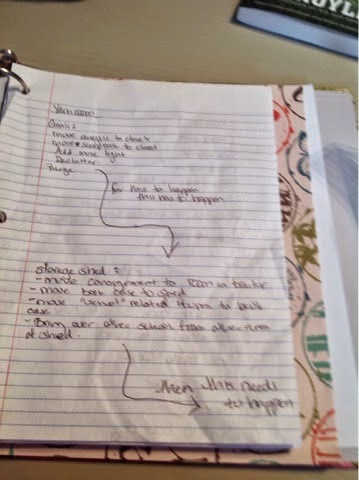 Yarn room
Goals:
move acrylic to closet
move to closet
Add more light
Declutter
Purge
for this to happen
this has to happen
Storage shed:
- move consignment to room in
- move book case to shed
- move "school" related items to book
case
- Bring over other school from other area
of shed.
then this needs
to happen